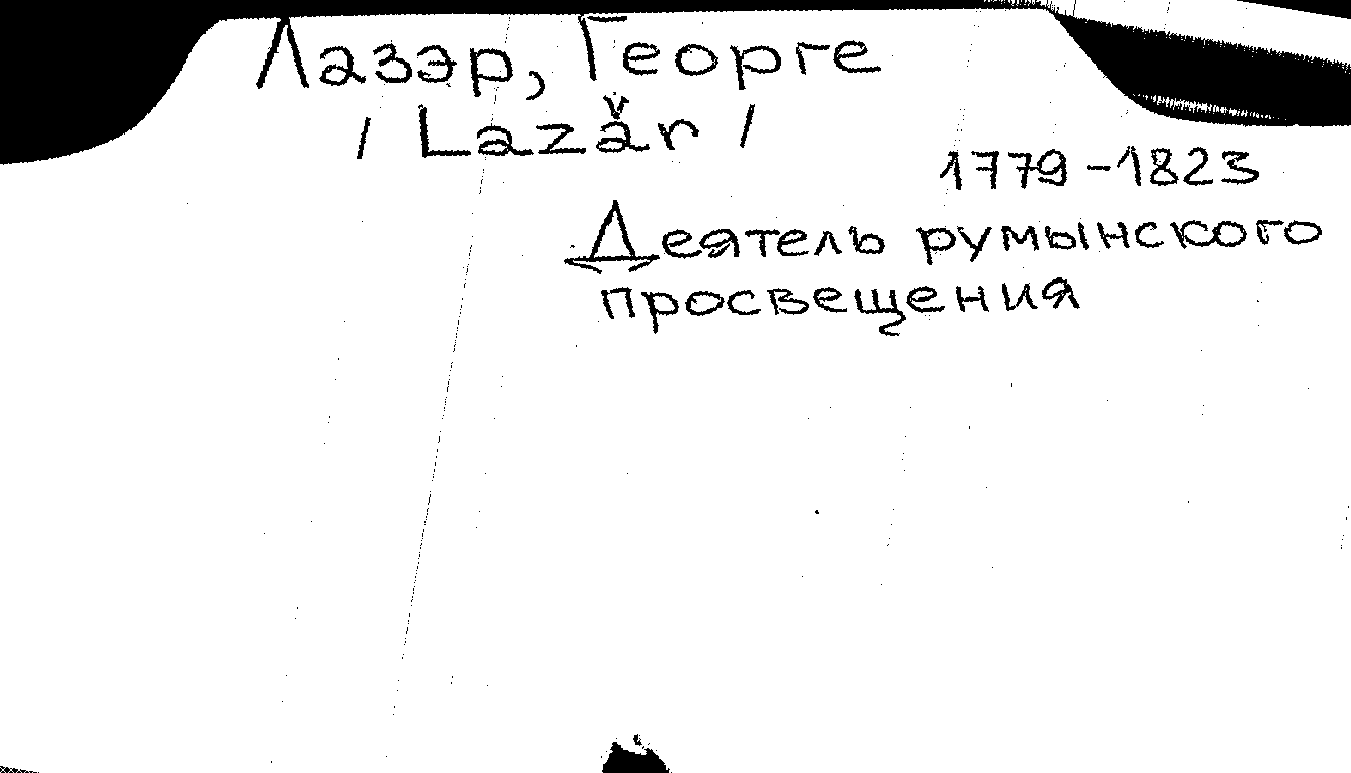 Лазэр, Георге
/ Lazăr /
1779-1823
Деятель румынского
просвещения